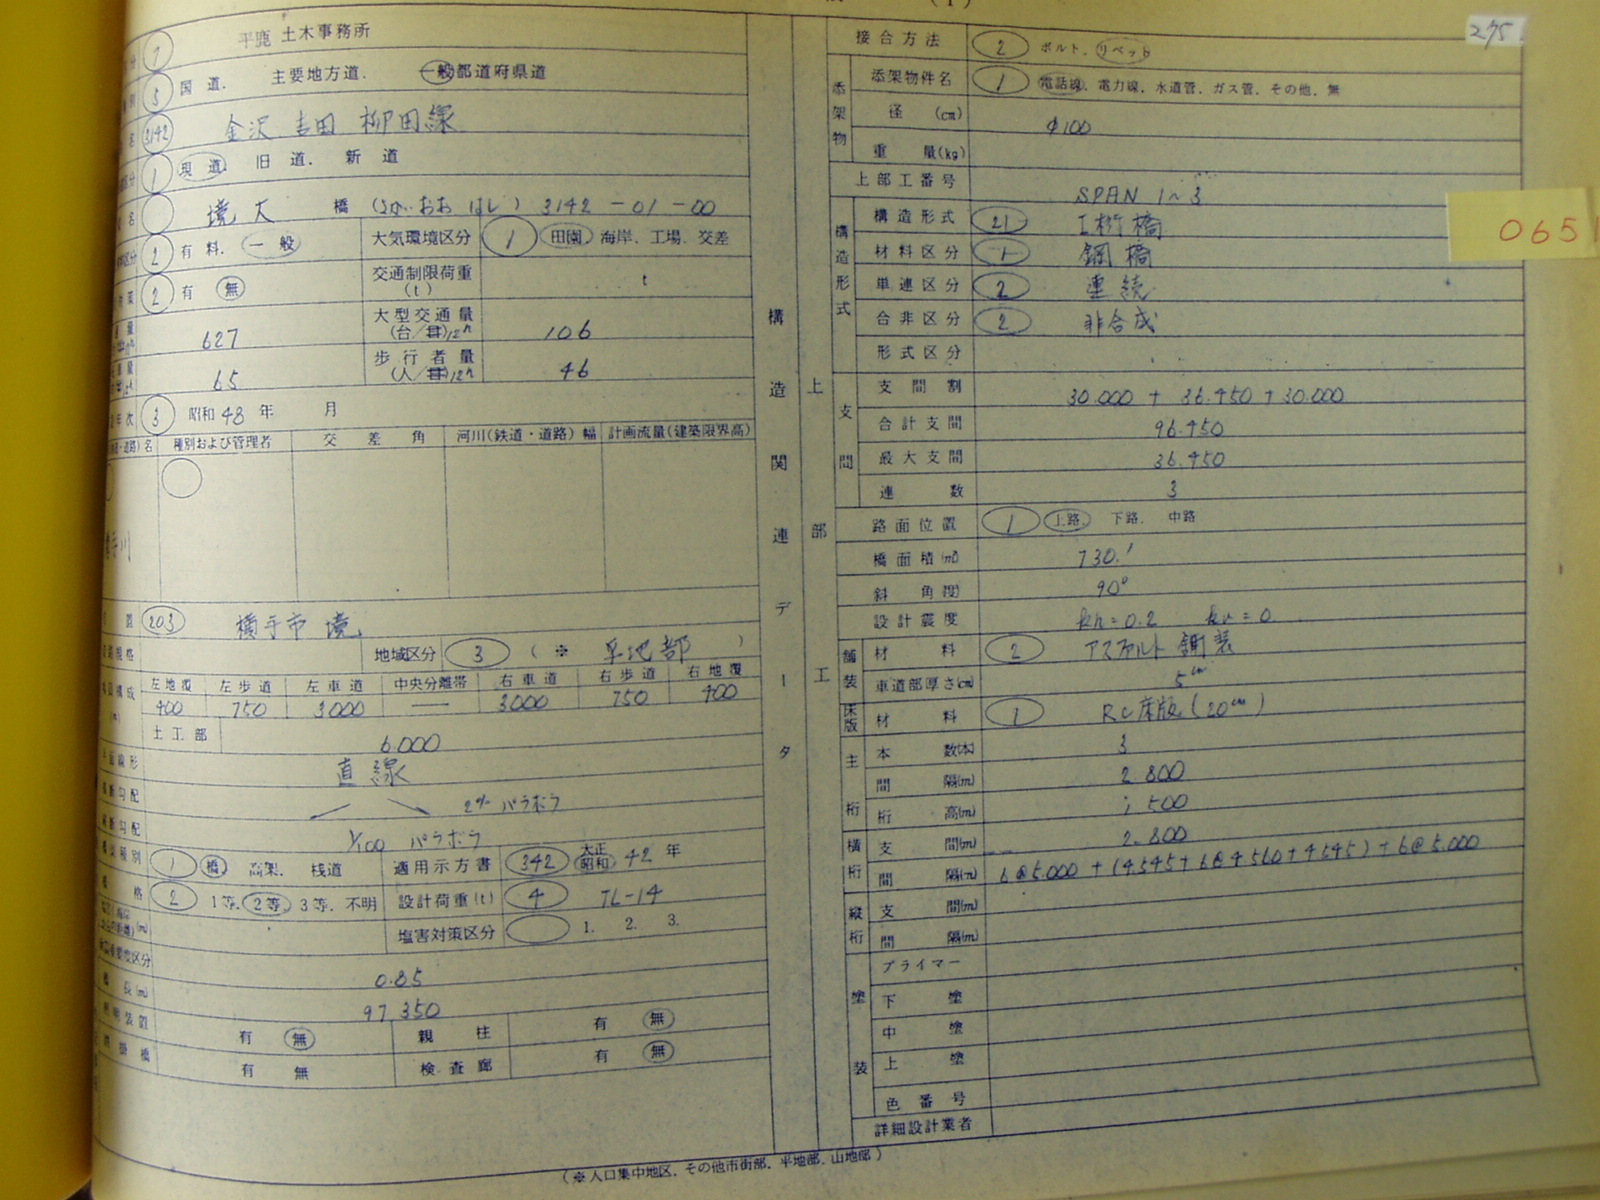 (1)
275
0651
7 平鹿 土木事務所
3 国道. 主要地方道. 一般都道府県道
3142 金沢 吉田 柳田線
1 現道. 旧道. 新道
境大 橋 (さかいおお はし) 3142-01-00
2 有料. 一般 大気環境区分 1 田園. 海岸. 工場. 交差
2 有 無 交通制限荷重(t) t
627 大型交通量(台/12h) 106
65 歩行者量(人/12h) 46
年次 3 昭和 48 年 月
種別および管理者 交差角 河川(鉄道・道路)幅 計画流量(建築限界高)
手川
203 横手市 境
地域区分 3 (※ 平地部 )
左地覆 左歩道 左車道 中央分離帯 右車道 右歩道 右地覆
400 750 3000 — 3000 750 400
土工部 6.000
直線
2% パラボラ
1/100 パラボラ
1 橋. 高架. 桟道 適用示方書 342 大正 昭和 42 年
格 2 1等. 2等. 3等. 不明 設計荷重(t) 4 TL-14
塩害対策区分 1. 2. 3.
0.85
長(m) 97.350
有 無 親柱 有 無
有 無 検査廊 有 無
構造関連データ
上部工
接合方法 2 ボルト. リベット
添架物
添架物件名 1 電話線. 電力線. 水道管. ガス管. その他. 無
径 (cm) φ100
重量(kg)
上部工番号 SPAN 1~3
構造形式
構造形式 21 I桁橋
材料区分 1 鋼橋
単連区分 2 連続
合非区分 2 非合成
形式区分
支間
支間割 30.000 + 36.450 + 30.000
合計支間 96.450
最大支間 36.450
連数 3
路面位置 1 上路. 下路. 中路
橋面積(m²) 730.1
斜角(度) 90°
設計震度 kh=0.2 kv=0
舗装
材料 2 アスファルト舗装
車道部厚さ(cm) 5cm
床版 材料 1 RC床版(20cm)
主桁
本数(本) 3
間隔(m) 2.800
桁高(m) 1.500
横桁
支間(m) 2.800
間隔(m) 6@5.000 + (4.545 + 6@4.560 + 4.545) + 6@5.000
縦桁
支間(m)
間隔(m)
塗装
プライマー
下塗
中塗
上塗
色番号
詳細設計業者
(※人口集中地区. その他市街部. 平地部. 山地部)